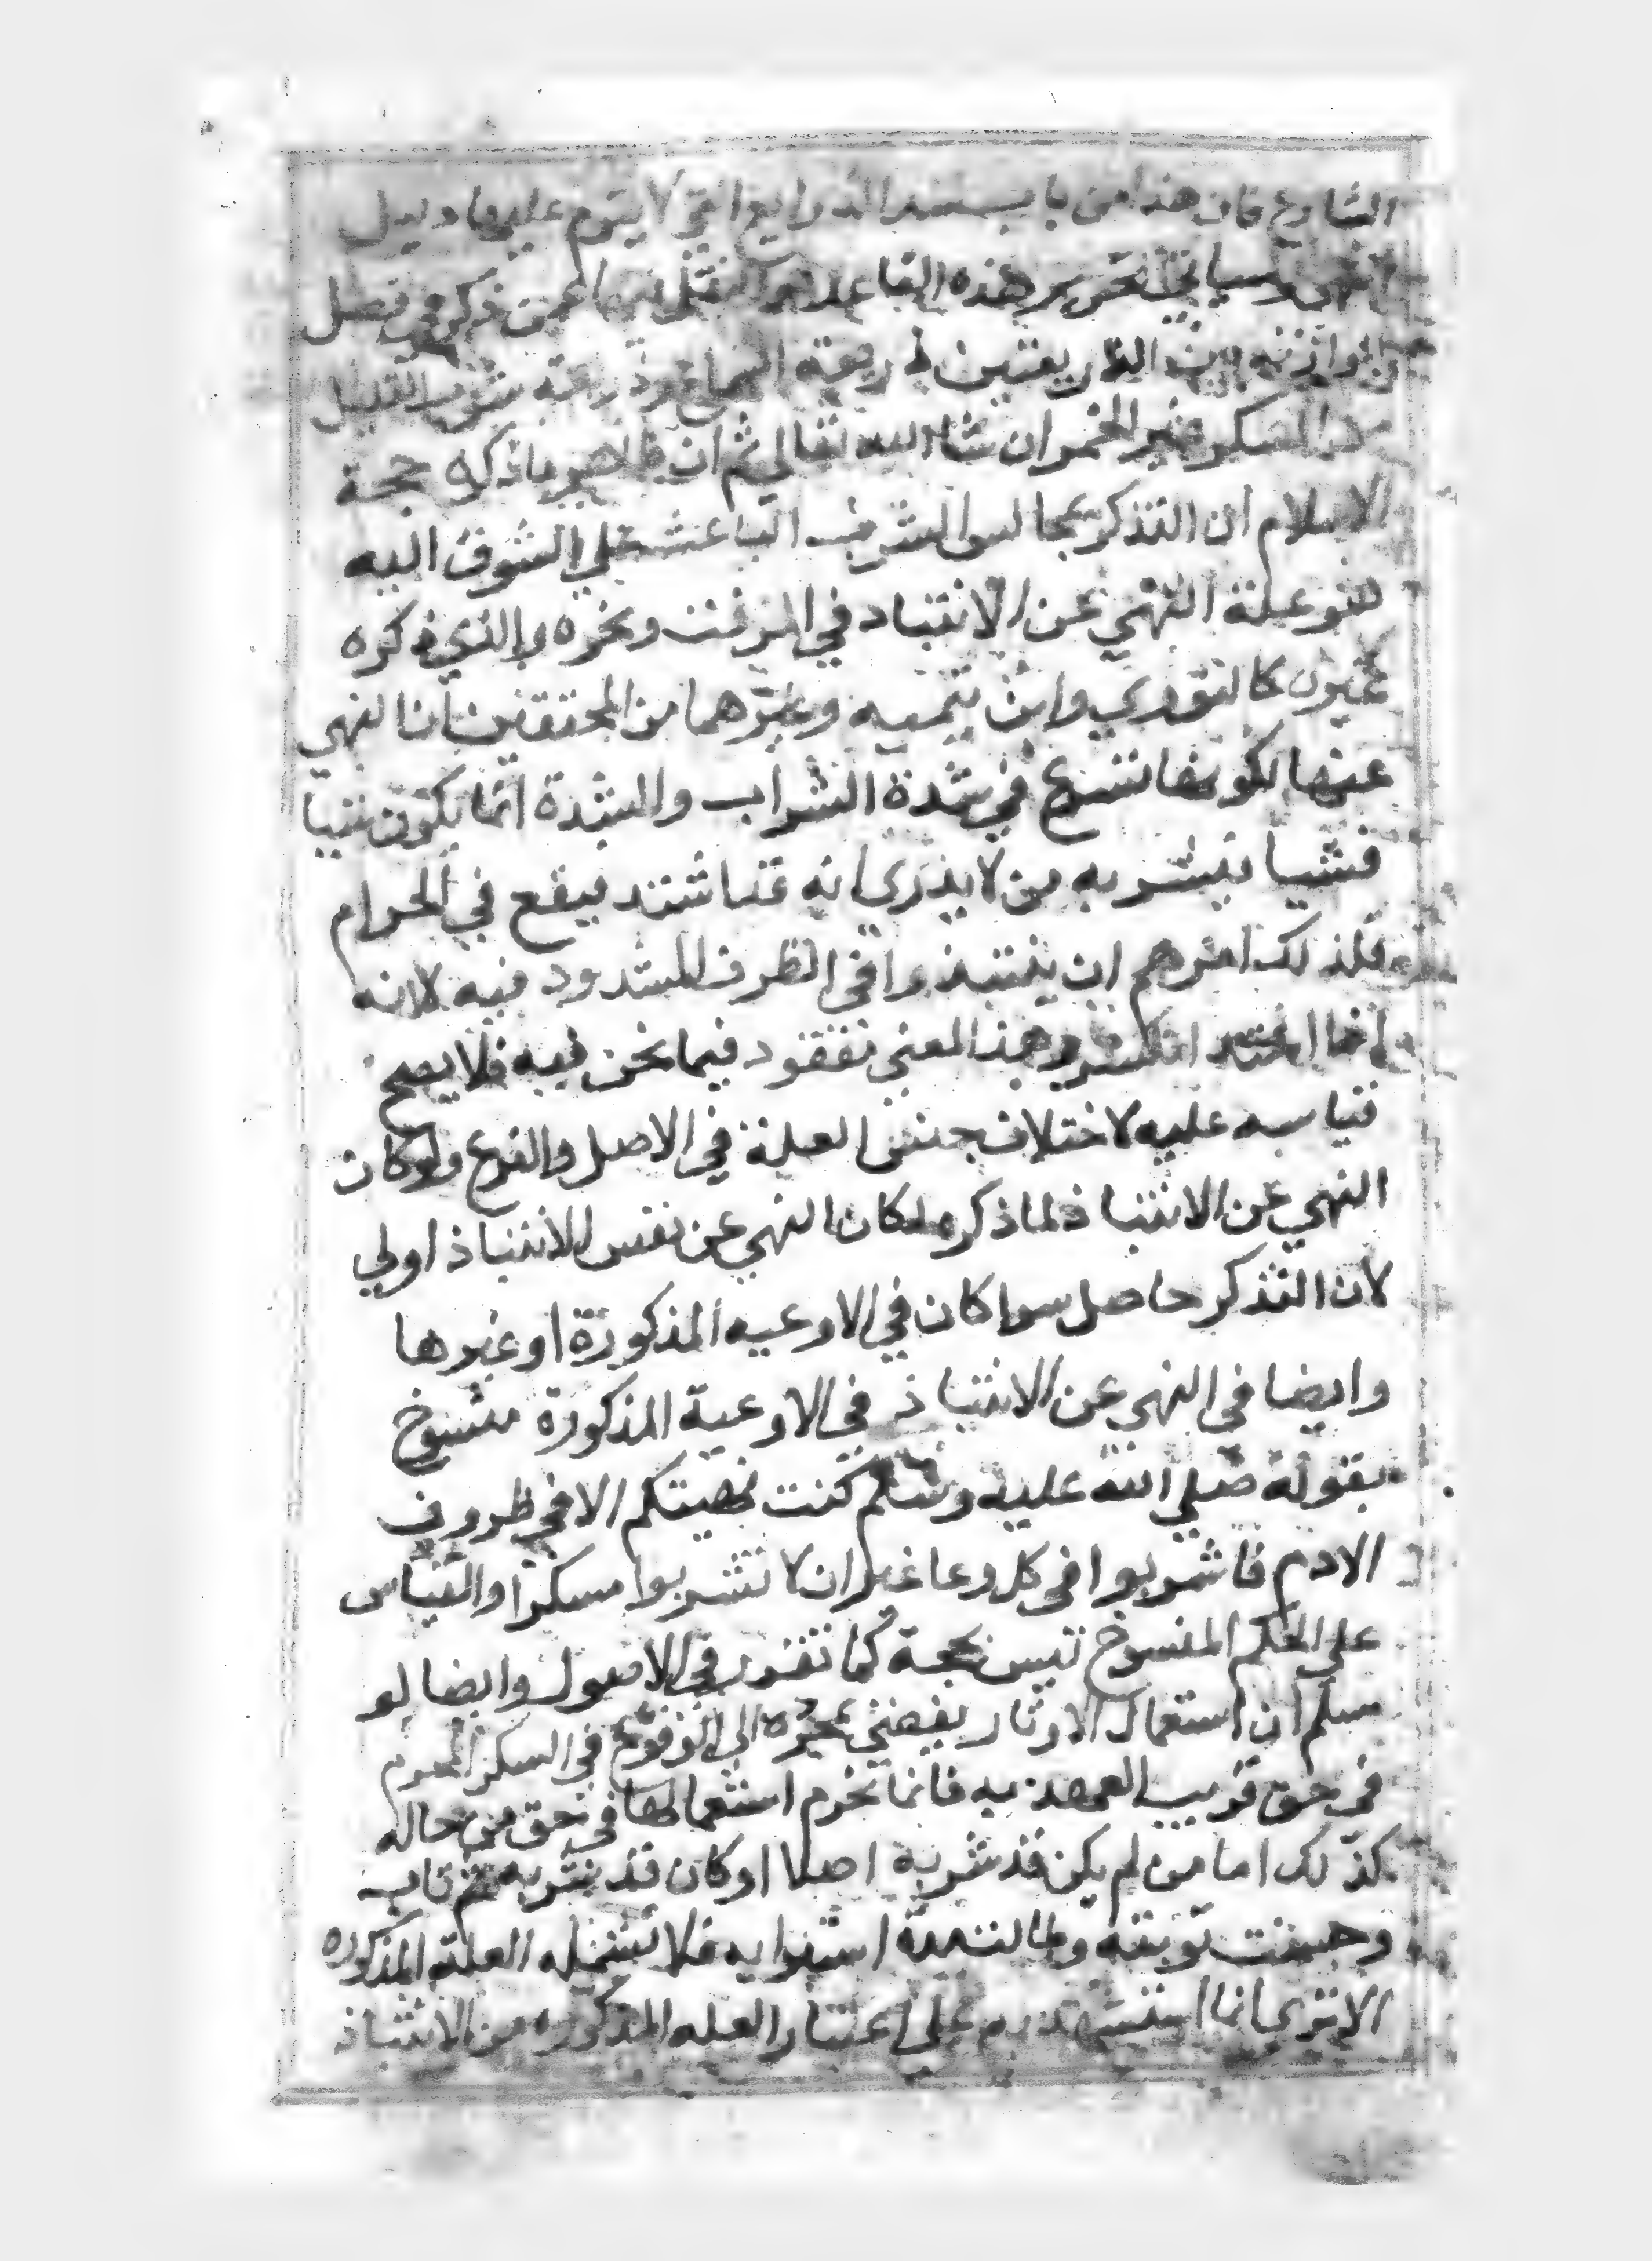 الشارع فان هذا من باب سد الذرايع التي لا يقوم عليها دليل
انتهى وسياتي تحرير هذه القاعدة ذكره في فصل
الموازنة بين الذريعتين ذريعة السماع وذريعة شرب القليل
المسكر غير الخمر ان شاء الله تعالى ثم ان ظاهر ما ذكره حجة
الاسلام ان التذكر بمجالس الشرب الباعث على الشوق اليه
هو علة النهي عن الانتباد في المزفت ونحوه والذي ذكره
كثيرون كالنووي وابن تيميه وغيرهما من المحققين ان النهي
عنها لكونها تسرع في شدة الشراب والشدة انما تكون شيا
فشيا فيشربه من لا يدري انه قد اشتد فيقع في الحرام
فلذلك امرهم ان ينتبذوا في الظرف المشدود فيه لانه
اذا اشتد انكسر وهذا المعني مفقود فيما نحن فيه فلا يصح
قياسه عليه لاختلاف جنس العلة في الاصل والفرع ولو كان
النهي عن الانتباذ لما ذكر لكان النهي عن نفس الانتباذ اولي
لان التذكر حاصل سوا كان في الاوعيه المذكورة او غيرها
وايضا في النهي عن الانتباذ في الاوعية المذكورة منسوخ
بقوله صلي الله عليه وسلم كنت نهيتكم الا في ظروف
الادم فاشربوا في كل وعا غير ان لا تشربوا مسكرا والقياس
علي الحكم المنسوخ ليس بحجة كما تقرر في الاصول وايضا لو
سلم ان استعمال الاوتار يفضي بمجرده الي الوقوع في السكر المحرم
في حق قريب العهد به فانما يحرم استعمالها في حق من حاله
كذلك اما من لم يكن قد شربه اصلا او كان قد شربه ثم تاب
وحسنت توبته وطالت مدة اشتوابه فلا تشمله العلة المذكوره
الا تري انما استشهد به علي اعتبار العله المذكوره من الانتباذ